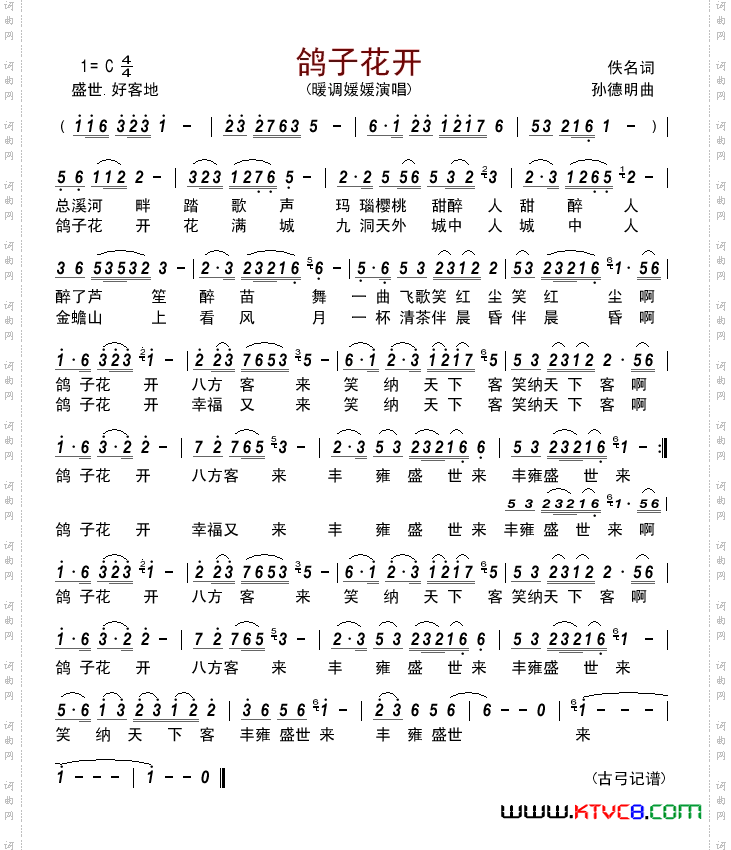 鸽子花开
1= C 4/4
佚名词
盛世.好客地
(暖调媛媛演唱)
孙德明曲
( i·i6 323i i - | 23 2763 5 - | 6·i 23 i2i7 6 | 53 216 i - )|
5 6 112 2 - | 323 1276 5 - | 2·2 5 56 5 32 3 | 2·3 1265 2 -
总溪河 畔 踏 歌 声 玛 瑙樱桃 甜醉 人 甜 醉 人
鸽子花 开 花 满 城 九 洞天外 城中 人 城 中 人
3 6 53532 3 - | 2·3 23216 6 - | 5·6 5 3 2312 2 | 53 23216 1· 56
醉了芦 笙 醉 苗 舞 一 曲 飞歌笑 红 尘 笑 红 尘 啊
金蟾山 上 看 风 月 一 杯 清茶伴 晨 昏 伴 晨 昏 啊
1·6 323 1 - | 2 23 7653 5 - | 6·1 2·3 1217 5 | 53 2312 2· 56
鸽 子花 开 八方 客 来 笑 纳 天 下 客 笑纳天 下 客 啊
鸽 子花 开 幸福 又 来 笑 纳 天 下 客 笑纳天 下 客 啊
1·6 3·2 2 - | 7 2 765 3 - | 2·3 53 23216 6 | 5 3 23216 1 - :||
鸽 子花 开 八方客 来 丰 雍 盛 世 来 丰雍盛 世 来
5 3 23216 1· 56
鸽 子花 开 幸福又 来 丰 雍 盛 世 来 丰雍 盛 世 来 啊
1·6 323 1 - | 2 23 7653 5 - | 6·1 2·3 1217 5 | 53 2312 2· 56
鸽 子花 开 八方 客 来 笑 纳 天 下 客 笑纳天 下 客 啊
1·6 3·2 2 - | 7 2 765 3 - | 2·3 53 23216 6 | 5 3 23216 1 -
鸽 子花 开 八方客 来 丰 雍 盛 世 来 丰雍盛 世 来
5·6 13 2312 2 | 36 56 1 - | 23 656 | 6 - - 0 | 1 - - -
笑 纳 天 下 客 丰雍 盛世 来 丰 雍 盛世 来
1 - - - | 1 - - 0 ||
(古弓记谱)
www.KTVC8.com
词曲网